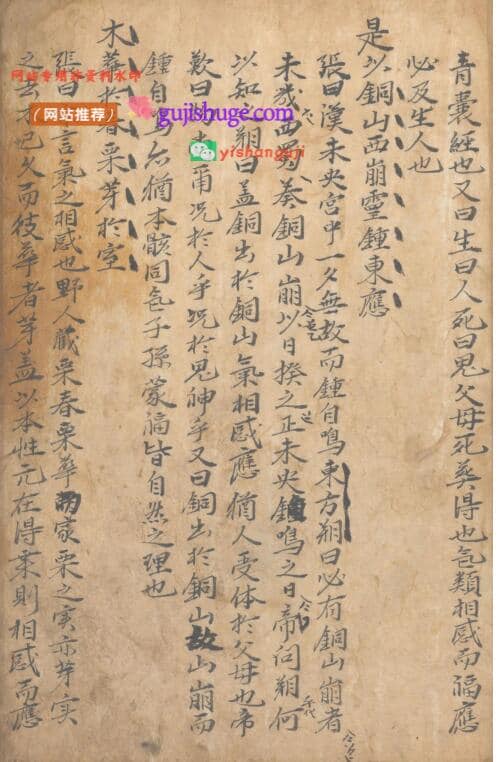 青囊經也又曰生曰人死曰鬼父母死葬得也气類相感而福應
必及生人也
是以銅山西崩靈鍾東應
張曰漢未央宫中一夕無故而鍾自鳴東方朔曰必有銅山崩者
未幾西蜀奏銅山崩以日揆之正未央鍾鳴之日帝问朔何
以知之朔曰盖銅出於銅山氣相感應猶人受体於父母也帝
歎曰爾况於人乎况於鬼神乎又曰銅出於銅山故山崩而
鍾自鳴亦猶本骸同气子孫蒙福皆自然之理也
木華於春栗芽於室
張曰言氣之相感也野人藏栗春栗華而家栗之实亦芽实
之去木已久而彼華者芽盖以本性元在得气則相感而應
（网站推荐）
gujishuge.com
yishanguji